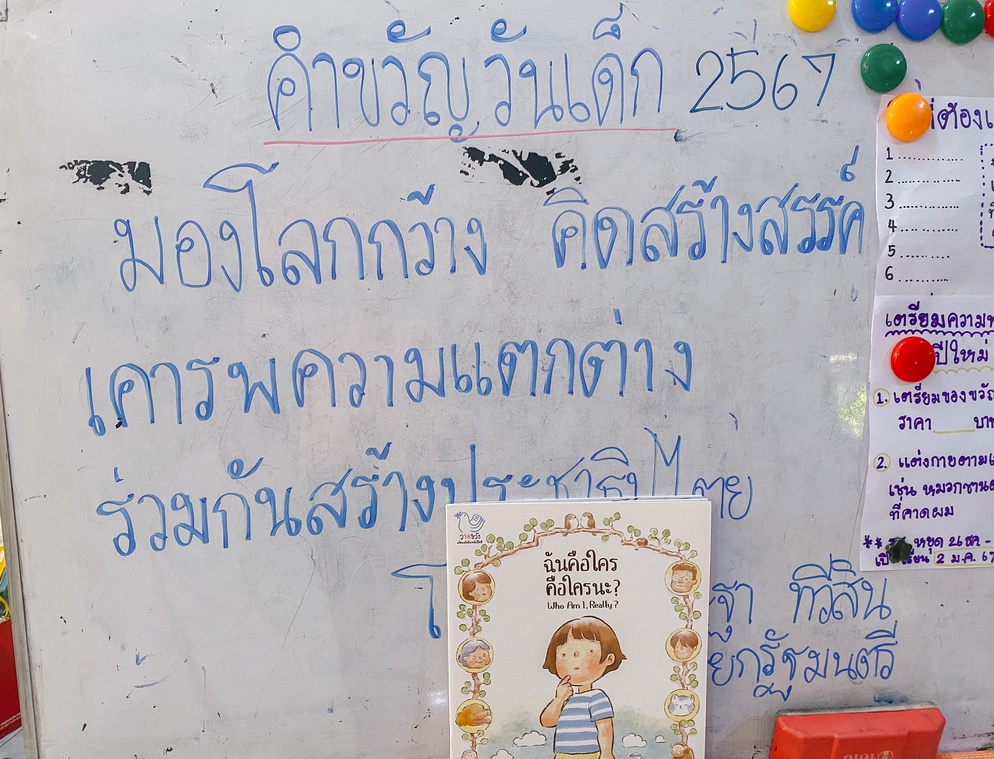 คำขวัญวันเด็ก 2567
มองโลกกว้าง คิดสร้างสรรค์
เคารพความแตกต่าง
ร่วมกันสร้างประชาธิปไตย
ทวีสิน
ยกรัฐมนตรี
วาดหวัง
ฉันคือใคร
คือใครนะ?
Who Am I, Really?
ต้องเ
1
2
3
4
5
6
เตรียมความพ
ปีใหม่
1. เตรียมของขวัญ
ราคา บาท
2. แต่งกายตาม
เช่น หมวกซานต
ที่คาดผม
** หยุด
เรียน 2 ม.ค. 67